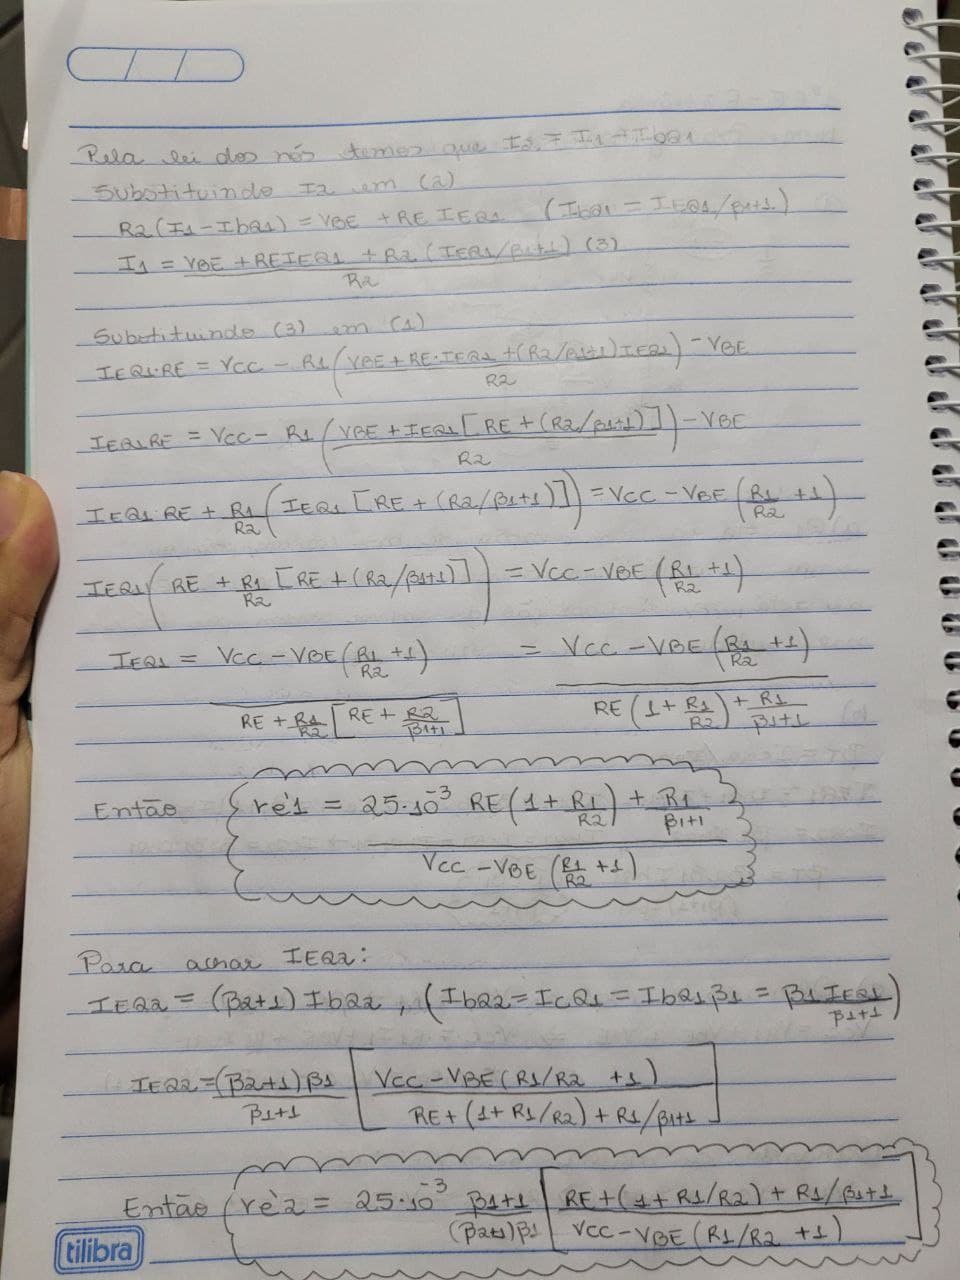 Pela lei dos nós temos que I2 = I1 + IbQ1
Substituindo I2 em (2)
R2 (I1 - IbQ1) = VBE + RE IEQ1 (IbQ1 = IEQ1/β1+1)
I1 = (VBE + REIEQ1 + R2 (IEQ1/β1+1))/R2 (3)
Substituindo (3) em (1)
IEQ1.RE = VCC - R1 ((VBE + RE.IEQ1 + (R2/β1+1) IEQ1)/R2) - VBE
IEQ1RE = VCC - R1 ((VBE + IEQ1 [RE + (R2/β1+1)])/R2) - VBE
IEQ1.RE + R1/R2 (IEQ1 [RE + (R2/β1+1)]) = VCC - VBE (R1/R2 + 1)
IEQ1 (RE + R1/R2 [RE + (R2/β1+1)]) = VCC - VBE (R1/R2 + 1)
IEQ1 = (VCC - VBE (R1/R2 + 1))/(RE + R1/R2 [RE + R2/β1+1]) = (VCC - VBE (R1/R2 + 1))/(RE (1 + R1/R2) + R1/β1+1)
Então re'1 = 25.10^-3 (RE (1 + R1/R2) + R1/β1+1)/(VCC - VBE (R1/R2 + 1))
Para achar IEQ2:
IEQ2 = (β2+1) IbQ2, (IbQ2 = IcQ1 = IbQ1 β1 = β1 IEQ1/β1+1)
IEQ2 = (β2+1) β1/β1+1 [(VCC - VBE (R1/R2 + 1))/(RE + (1 + R1/R2) + R1/β1+1)]
Então re'2 = 25.10^-3 β1+1/(β2+1)β1 [(RE + (1 + R1/R2) + R1/β1+1)/(VCC - VBE (R1/R2 + 1))]
tilibra